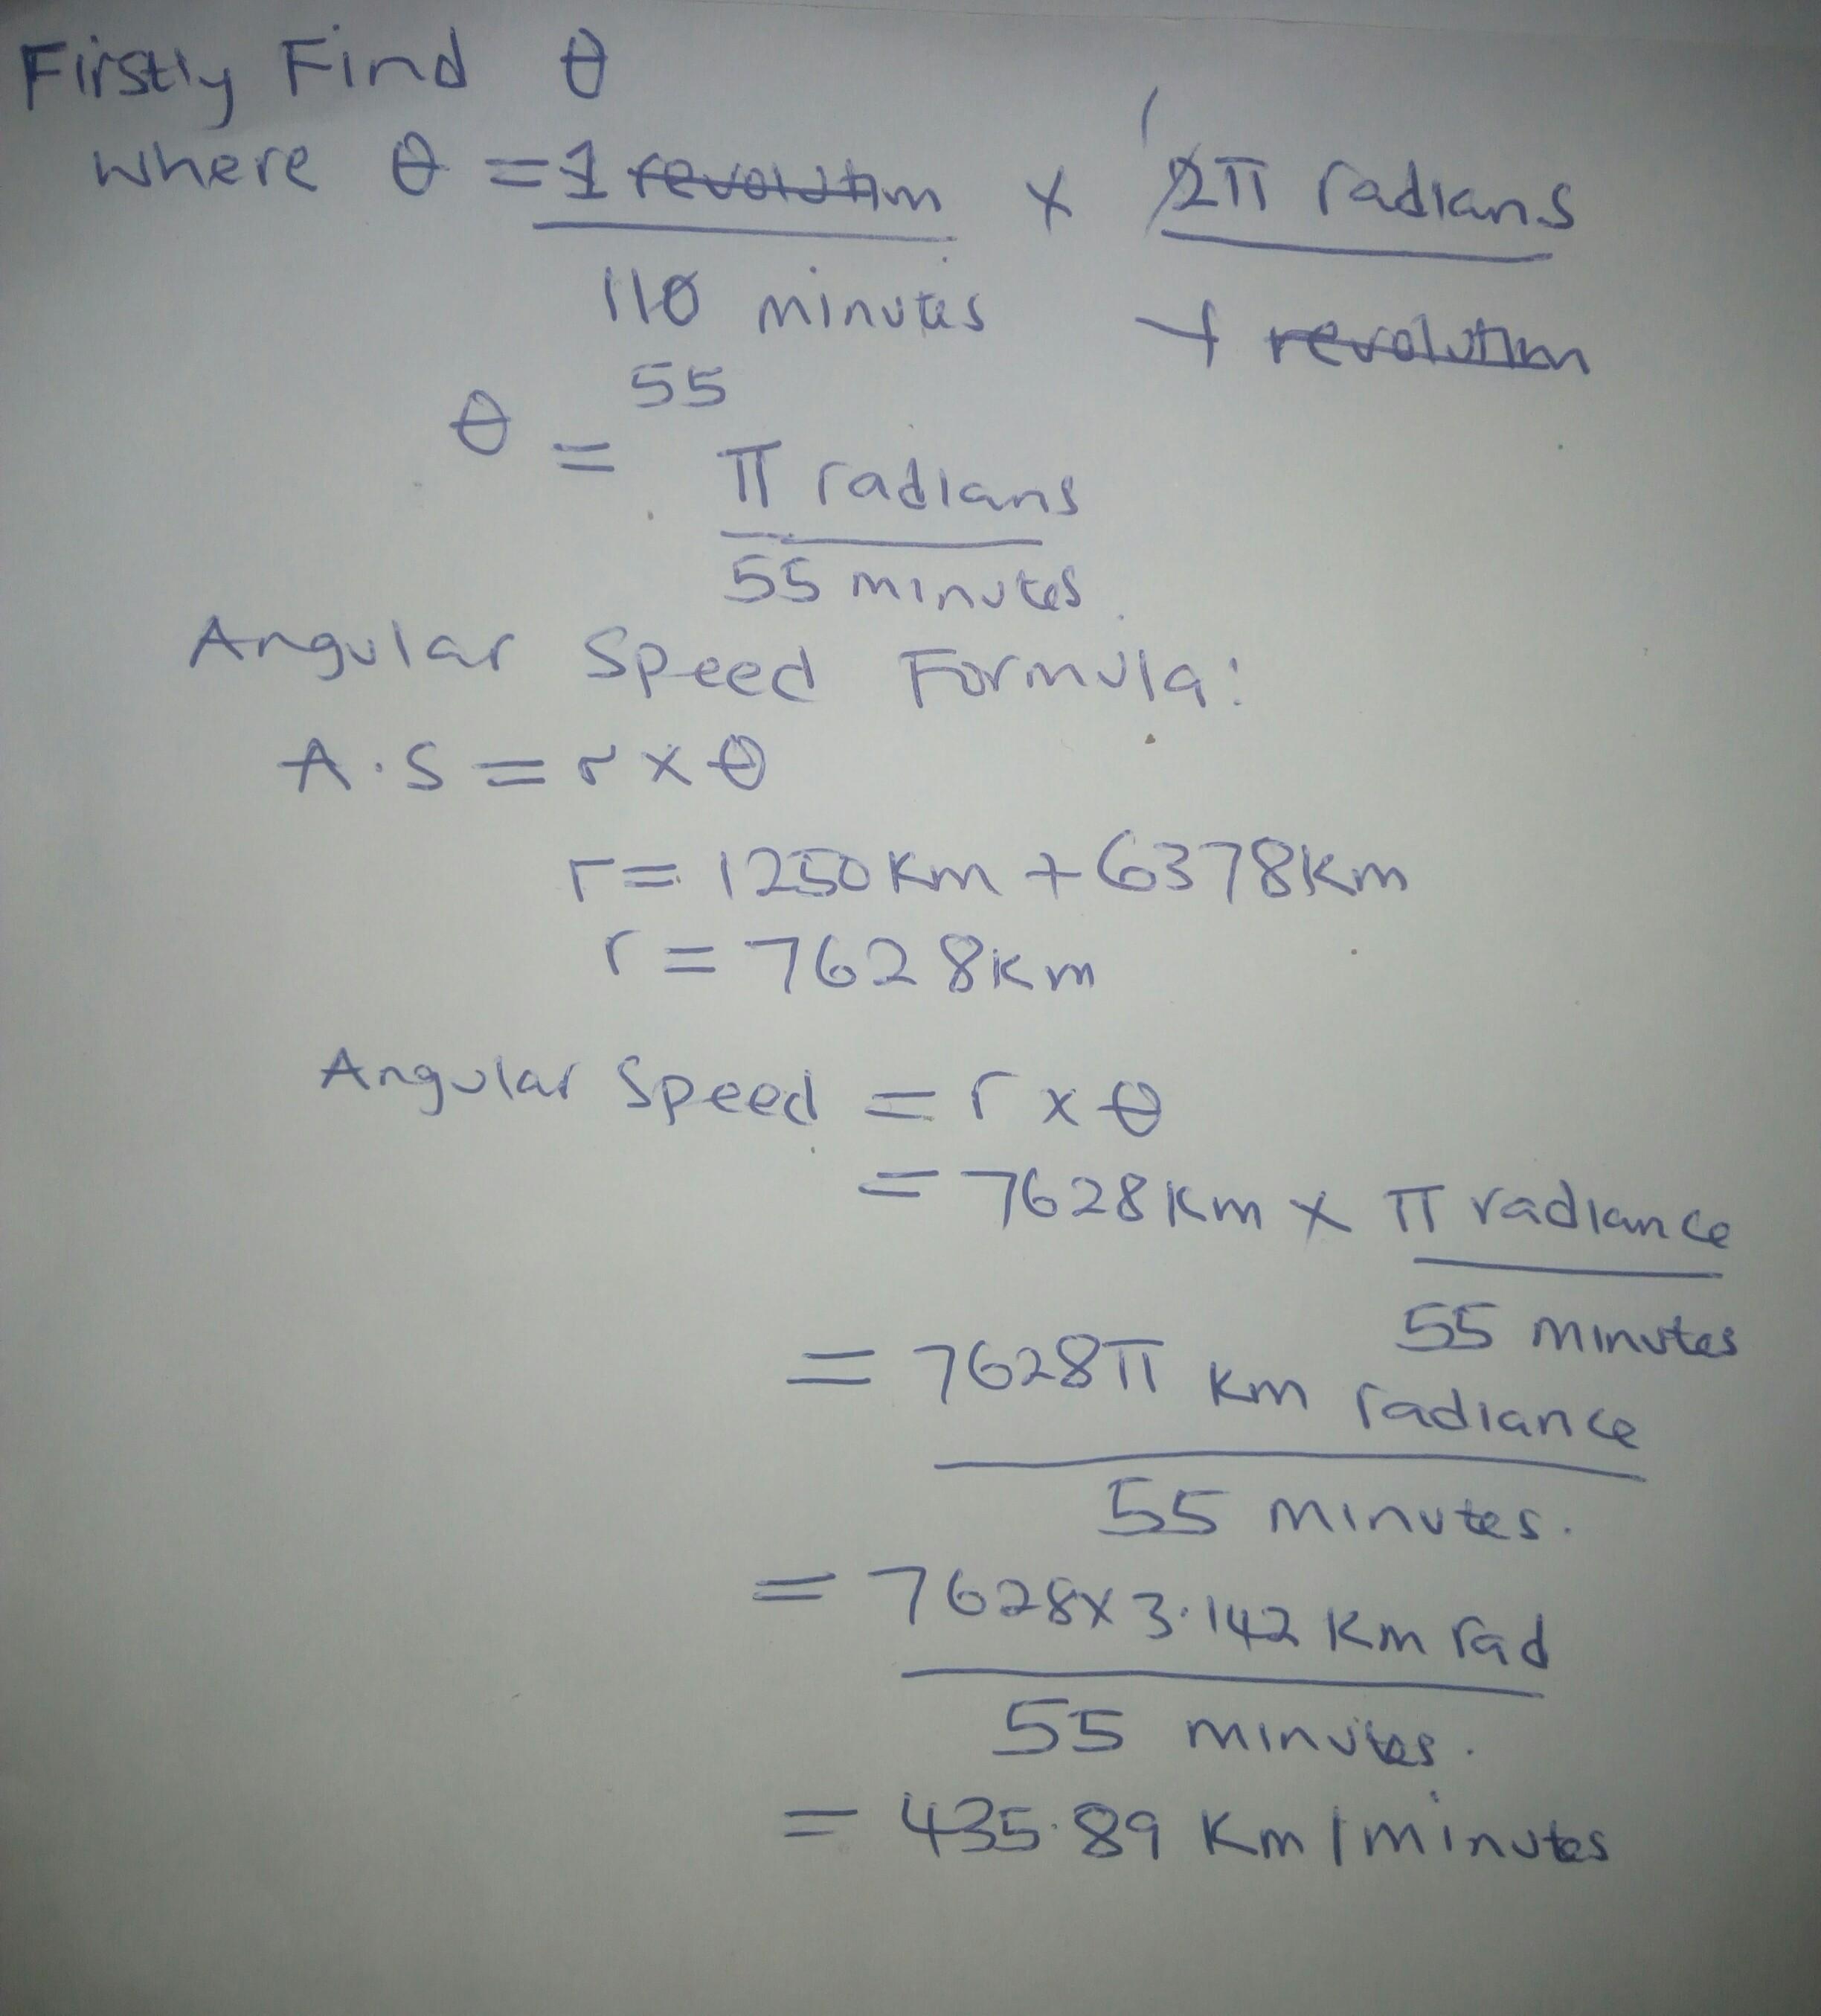 Firstly Find θ
where θ = 1 revolution × 2π radians 1
110 minutes 1 revolution
55
θ = π radians
55 minutes.
Angular Speed Formula:
A.S = r × θ
r = 1250 km + 6378 km
r = 7628 km
Angular Speed = r × θ
= 7628 km × π radiance
55 minutes
= 7628π km radiance
55 minutes.
= 7628 × 3.142 km rad
55 minutes.
= 435.89 km/minutes